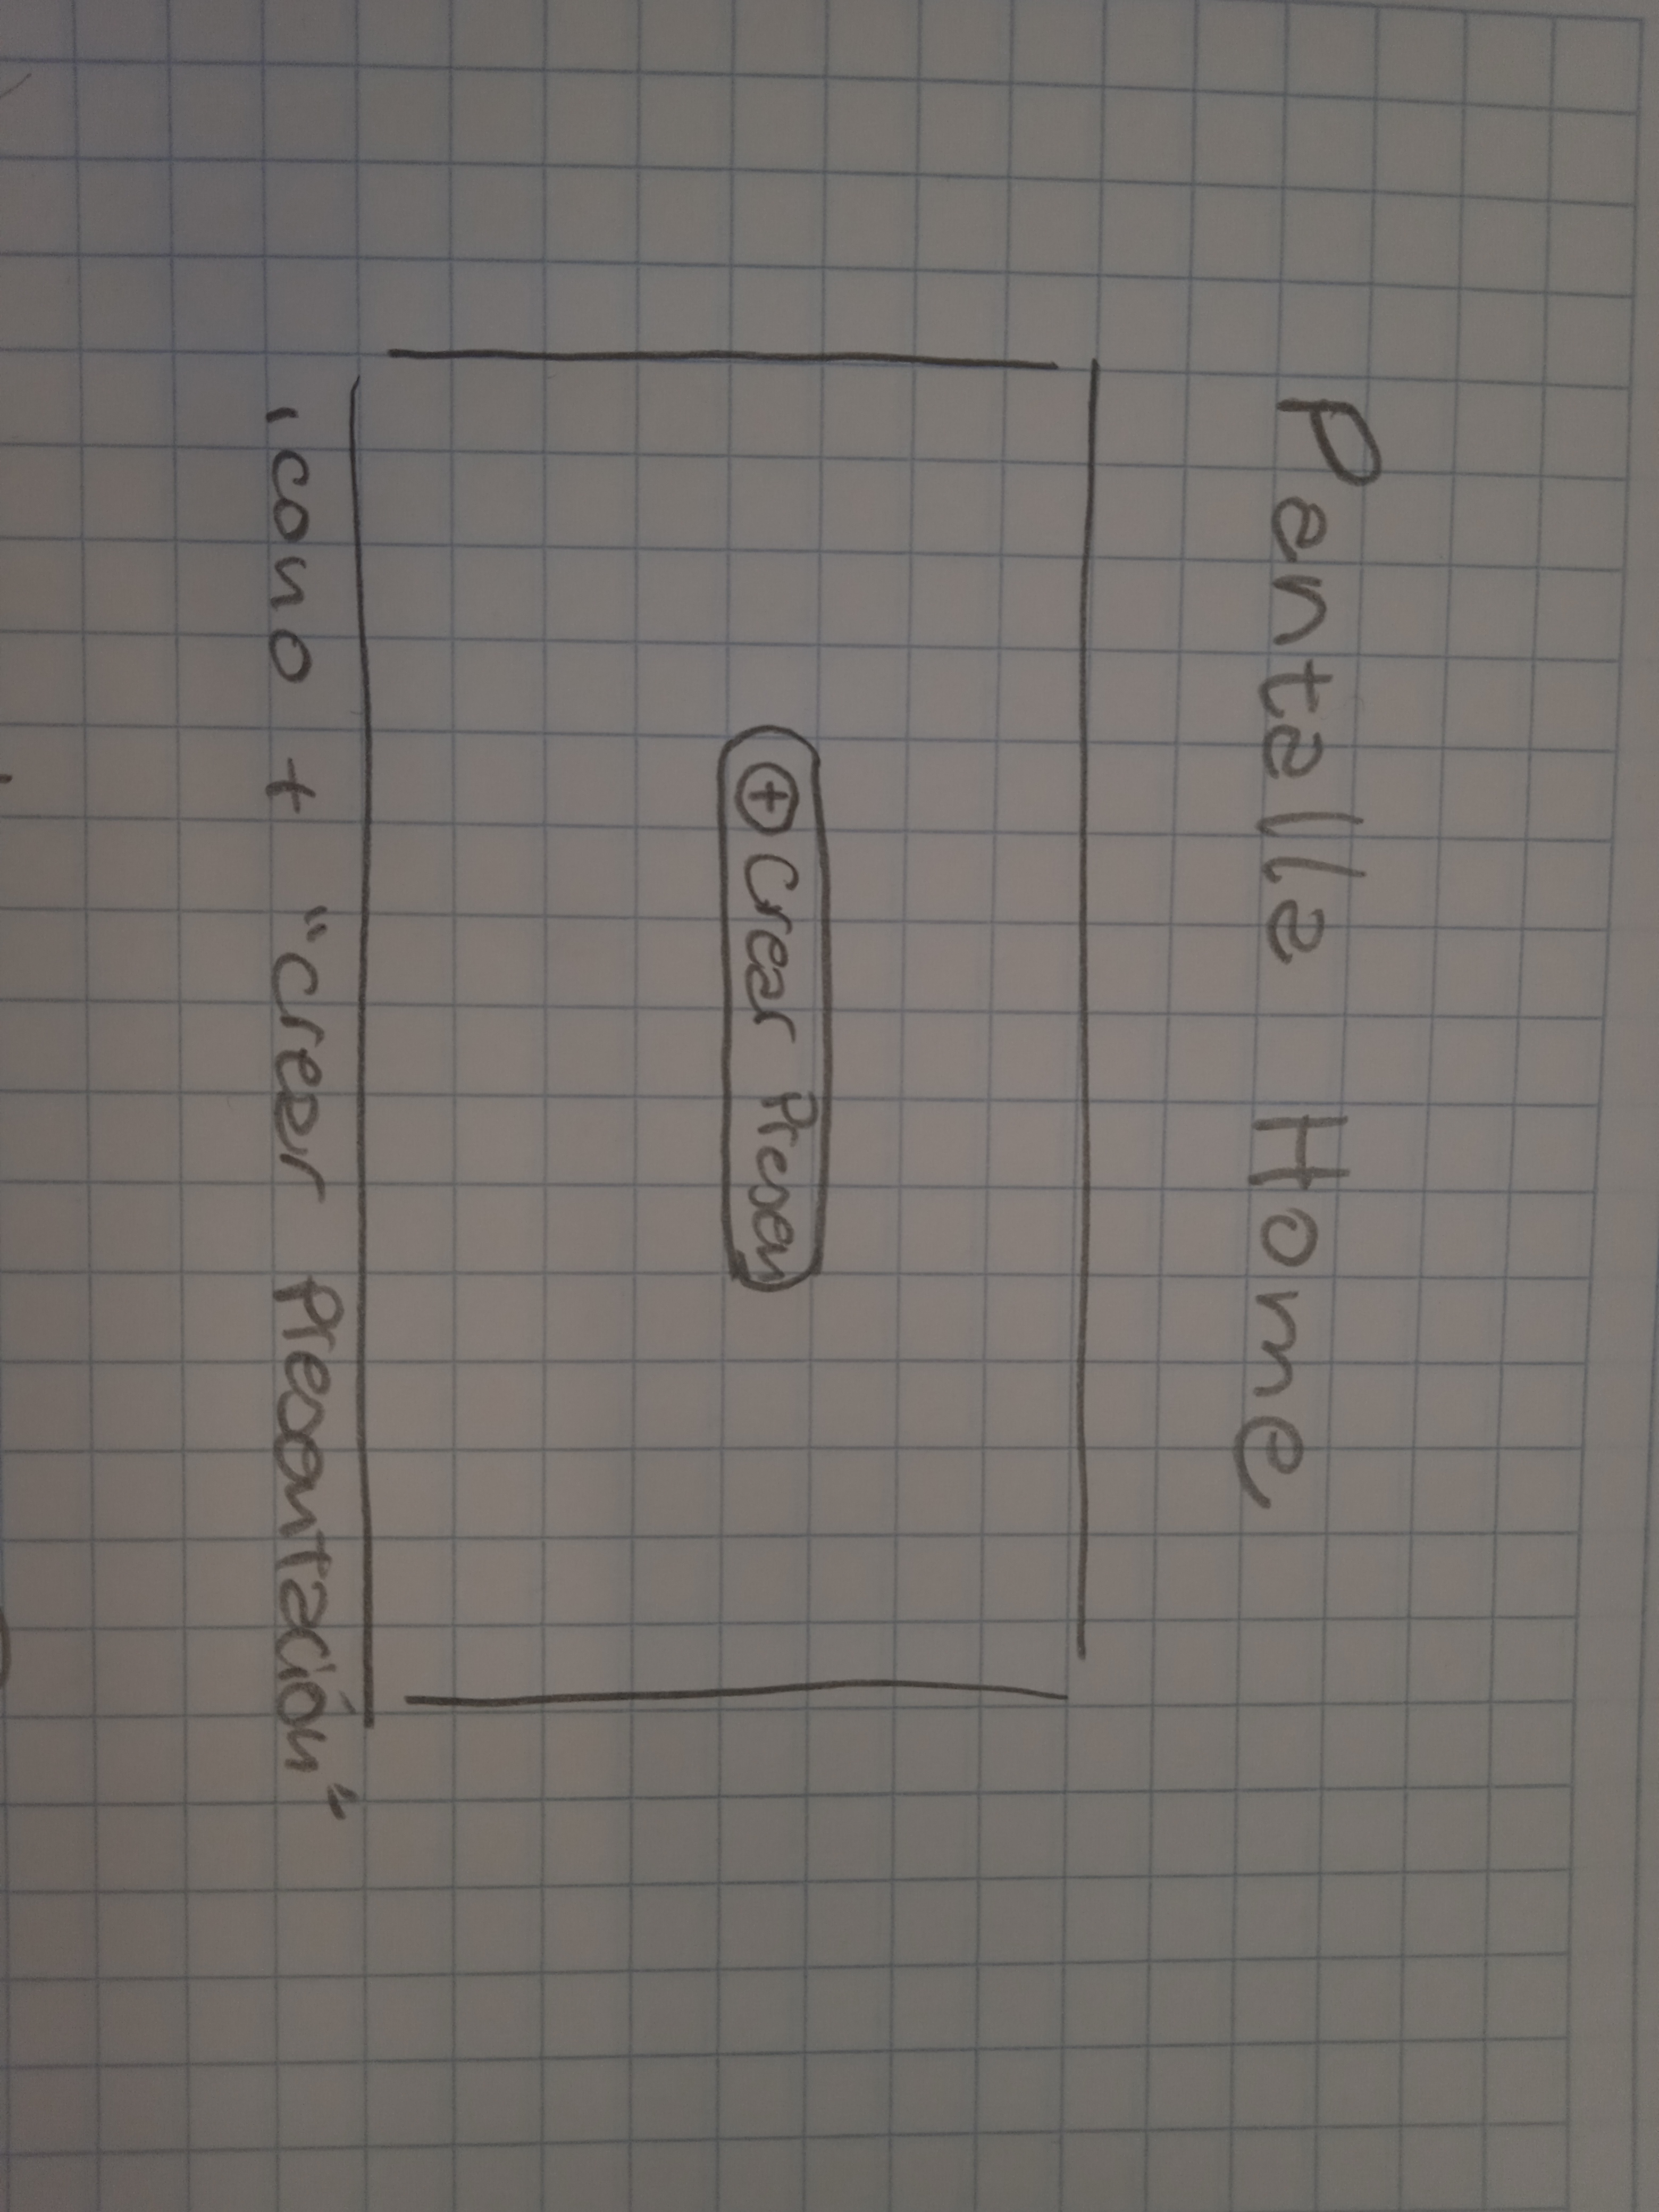 Pantalla Home
+ Crear Presen
icono + "Crear Presentación"